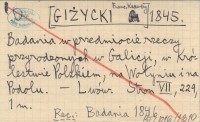 [GIŻYCKI Franc. Ksawery] 1845.
Badania w przedmiocie rzeczy
przyrodzonych w Galicji, w Kró-
lestwie Polskiem, na Wołyniu i na
Podolu. — Lwów. Stron VII, 229,
1 m.
Rec: Badania 184